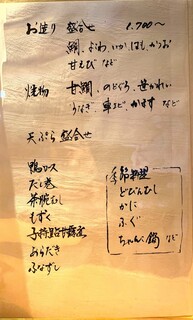 お造り 盛合せ 1.700～
鯛、よこわ、いか、はも、かつお
甘えび など
焼物 甘鯛、のどぐろ、笹かれい
うなぎ、車えび、かます など
天ぷら 盛合せ
鴨ロース
だし巻
茶碗むし
もずく
子持鮎甘露煮
あらだき
ふなずし
季節料理
どびんむし
かに
ふぐ
ちゃんこ鍋 など